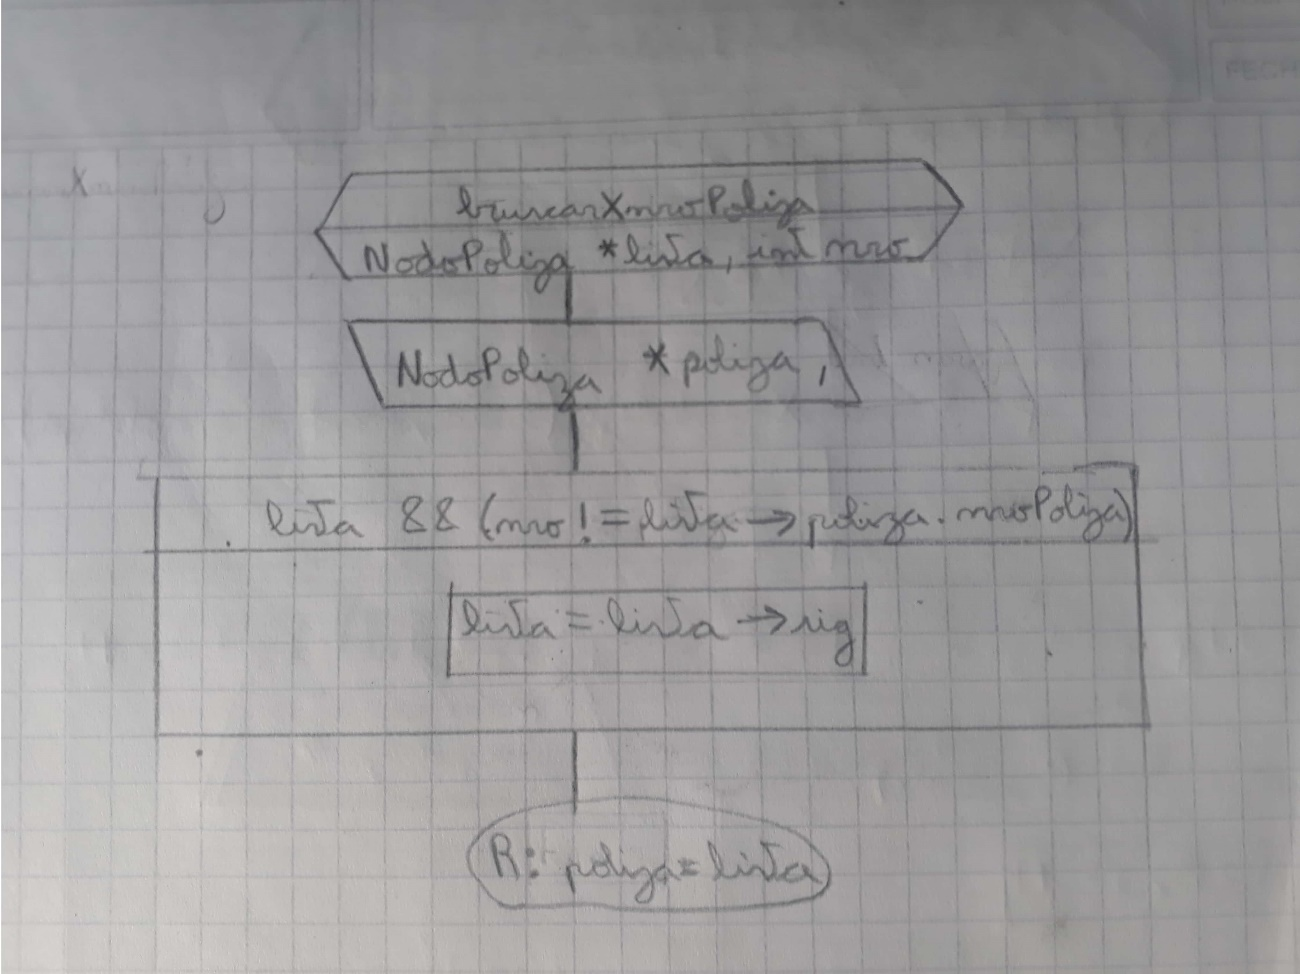 FECH
X
buscarXnroPoliza
NodoPoliza *lista, int nro
NodoPoliza *poliza,
lista && (nro != lista → poliza.nroPoliza)
lista = lista → sig
R: poliza = lista